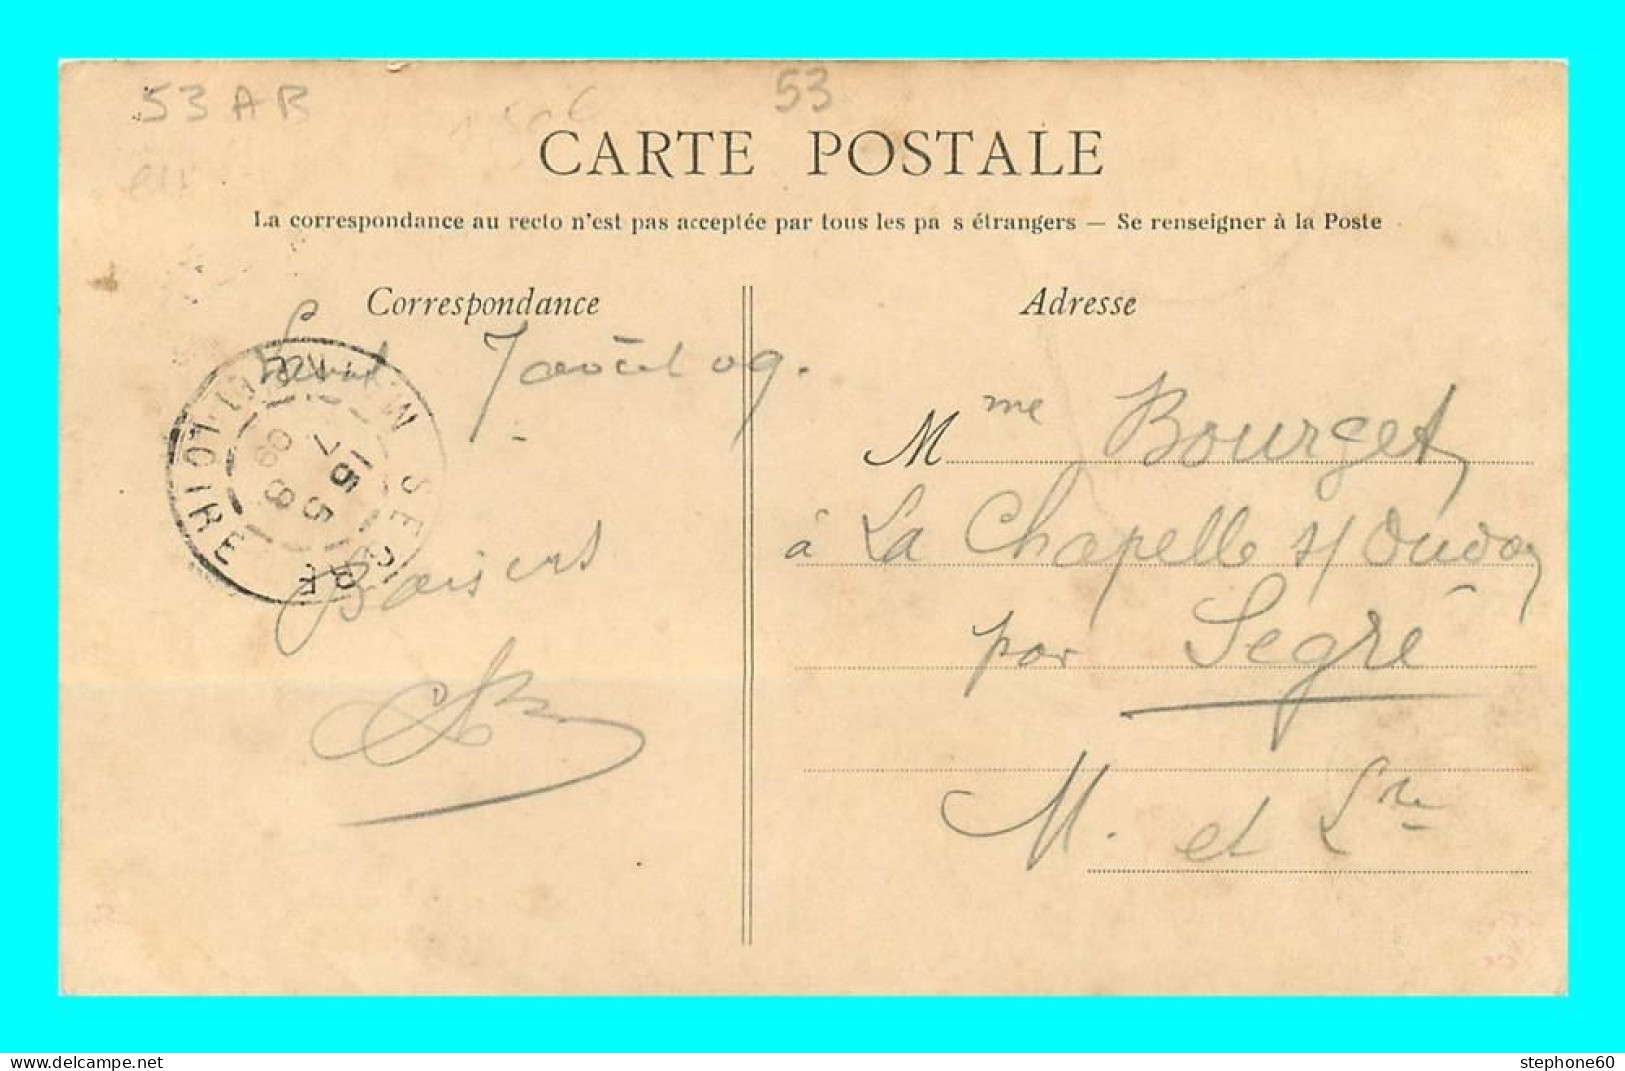 53 AB
53
CARTE POSTALE
La correspondance au recto n'est pas acceptée par tous les pa s étrangers — Se renseigner à la Poste
Correspondance
Adresse
Laval 7 août 09.
Mme Bourget
à La Chapelle s/ Oudon
par Segré
M. et Lre
Baisers
SEGRÉ
MAINE-ET-LOIRE
15 5
7 8
09
stephone60